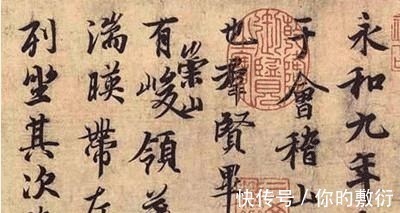 永和九年
于會稽山
也羣賢畢
有崇山峻領茂
湍暎帶左
列坐其次
快传号/你旳敷衍